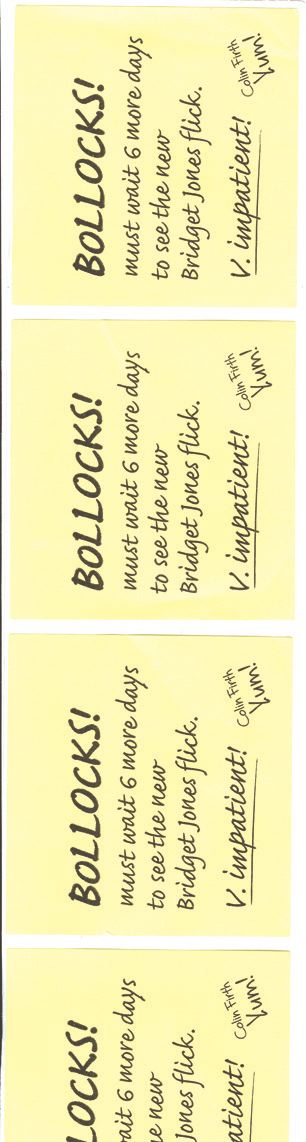 BOLLOCKS!
must wait 6 more days
to see the new
Bridget Jones flick.
V. impatient!
Colin Firth
Yum!
BOLLOCKS!
must wait 6 more days
to see the new
Bridget Jones flick.
V. impatient!
Colin Firth
Yum!
BOLLOCKS!
must wait 6 more days
to see the new
Bridget Jones flick.
V. impatient!
Colin Firth
Yum!
LOCKS!
ait 6 more days
e new
Jones flick.
atient!
Colin Firth
Yum!